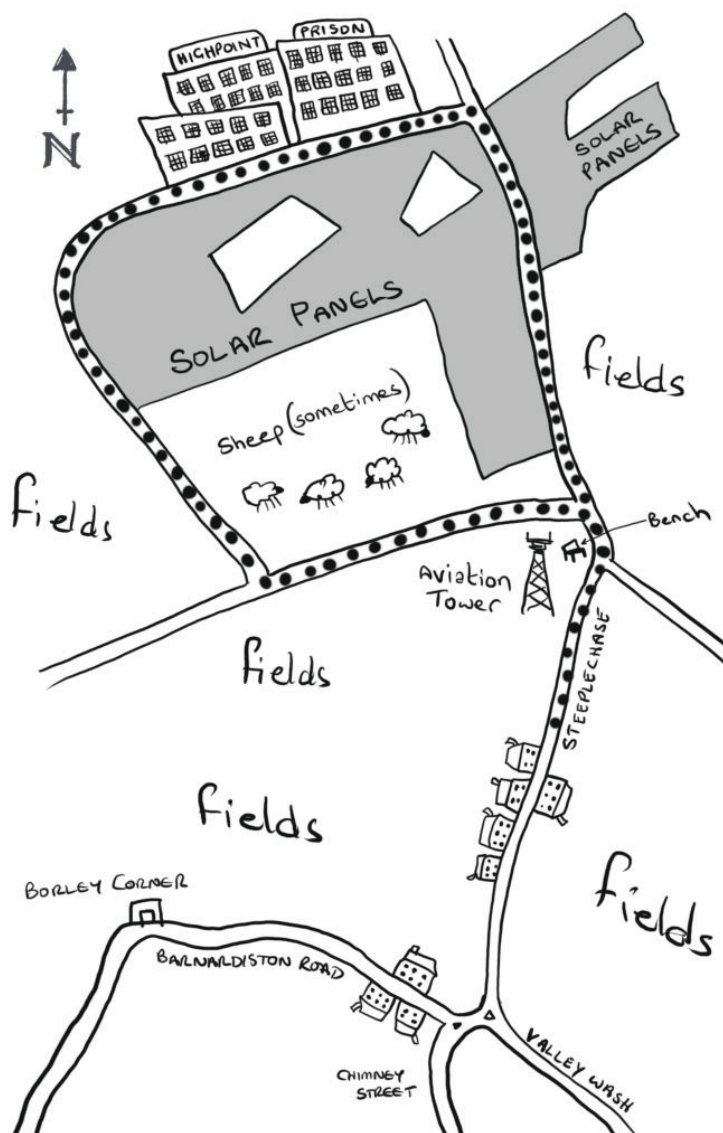 HIGHPOINT
PRISON
N
SOLAR
PANELS
SOLAR PANELS
fields
Sheep (sometimes)
fields
Bench
Aviation
Tower
fields
STEEPLECHASE
fields
fields
BORLEY CORNER
BARNARDISTON ROAD
CHIMNEY
STREET
VALLEY WASH